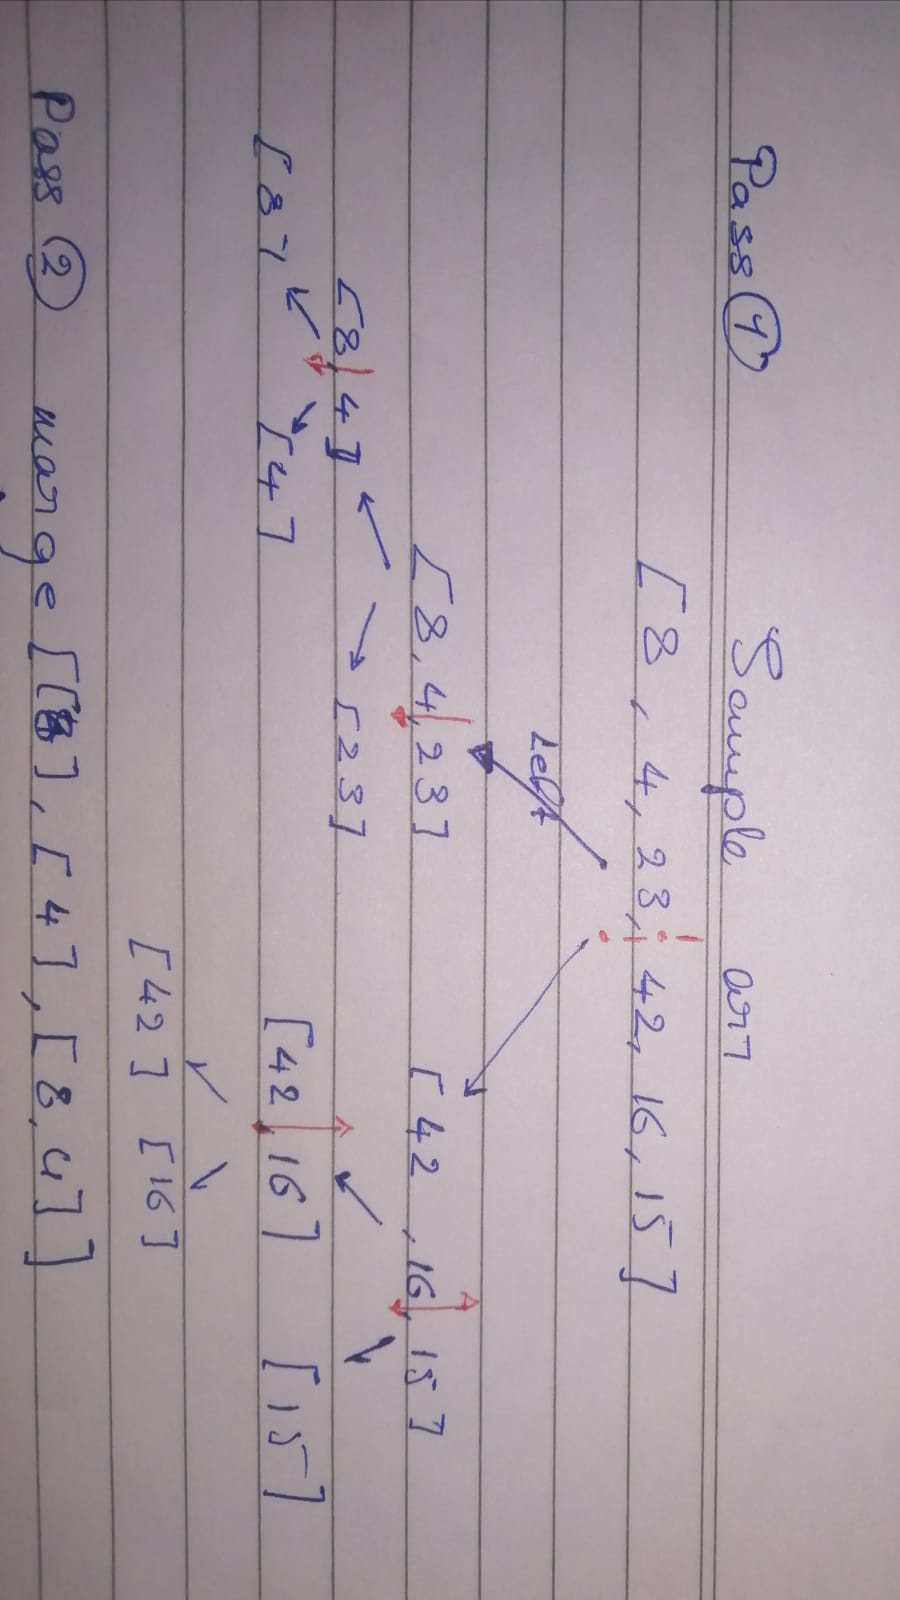 Pass 1 Sample arr
[ 8 , 4, 23, 42, 16, 15 ]
Left
[ 8, 4, 23 ] [ 42 , 16, 15 ]
[ 8, 4 ] [ 23 ]
[ 8 ] [ 4 ] [ 42, 16 ] [ 15 ]
[ 42 ] [ 16 ]
Pass 2 marge [ [ 8 ] , [ 4 ] , [ 8, 4 ] ]